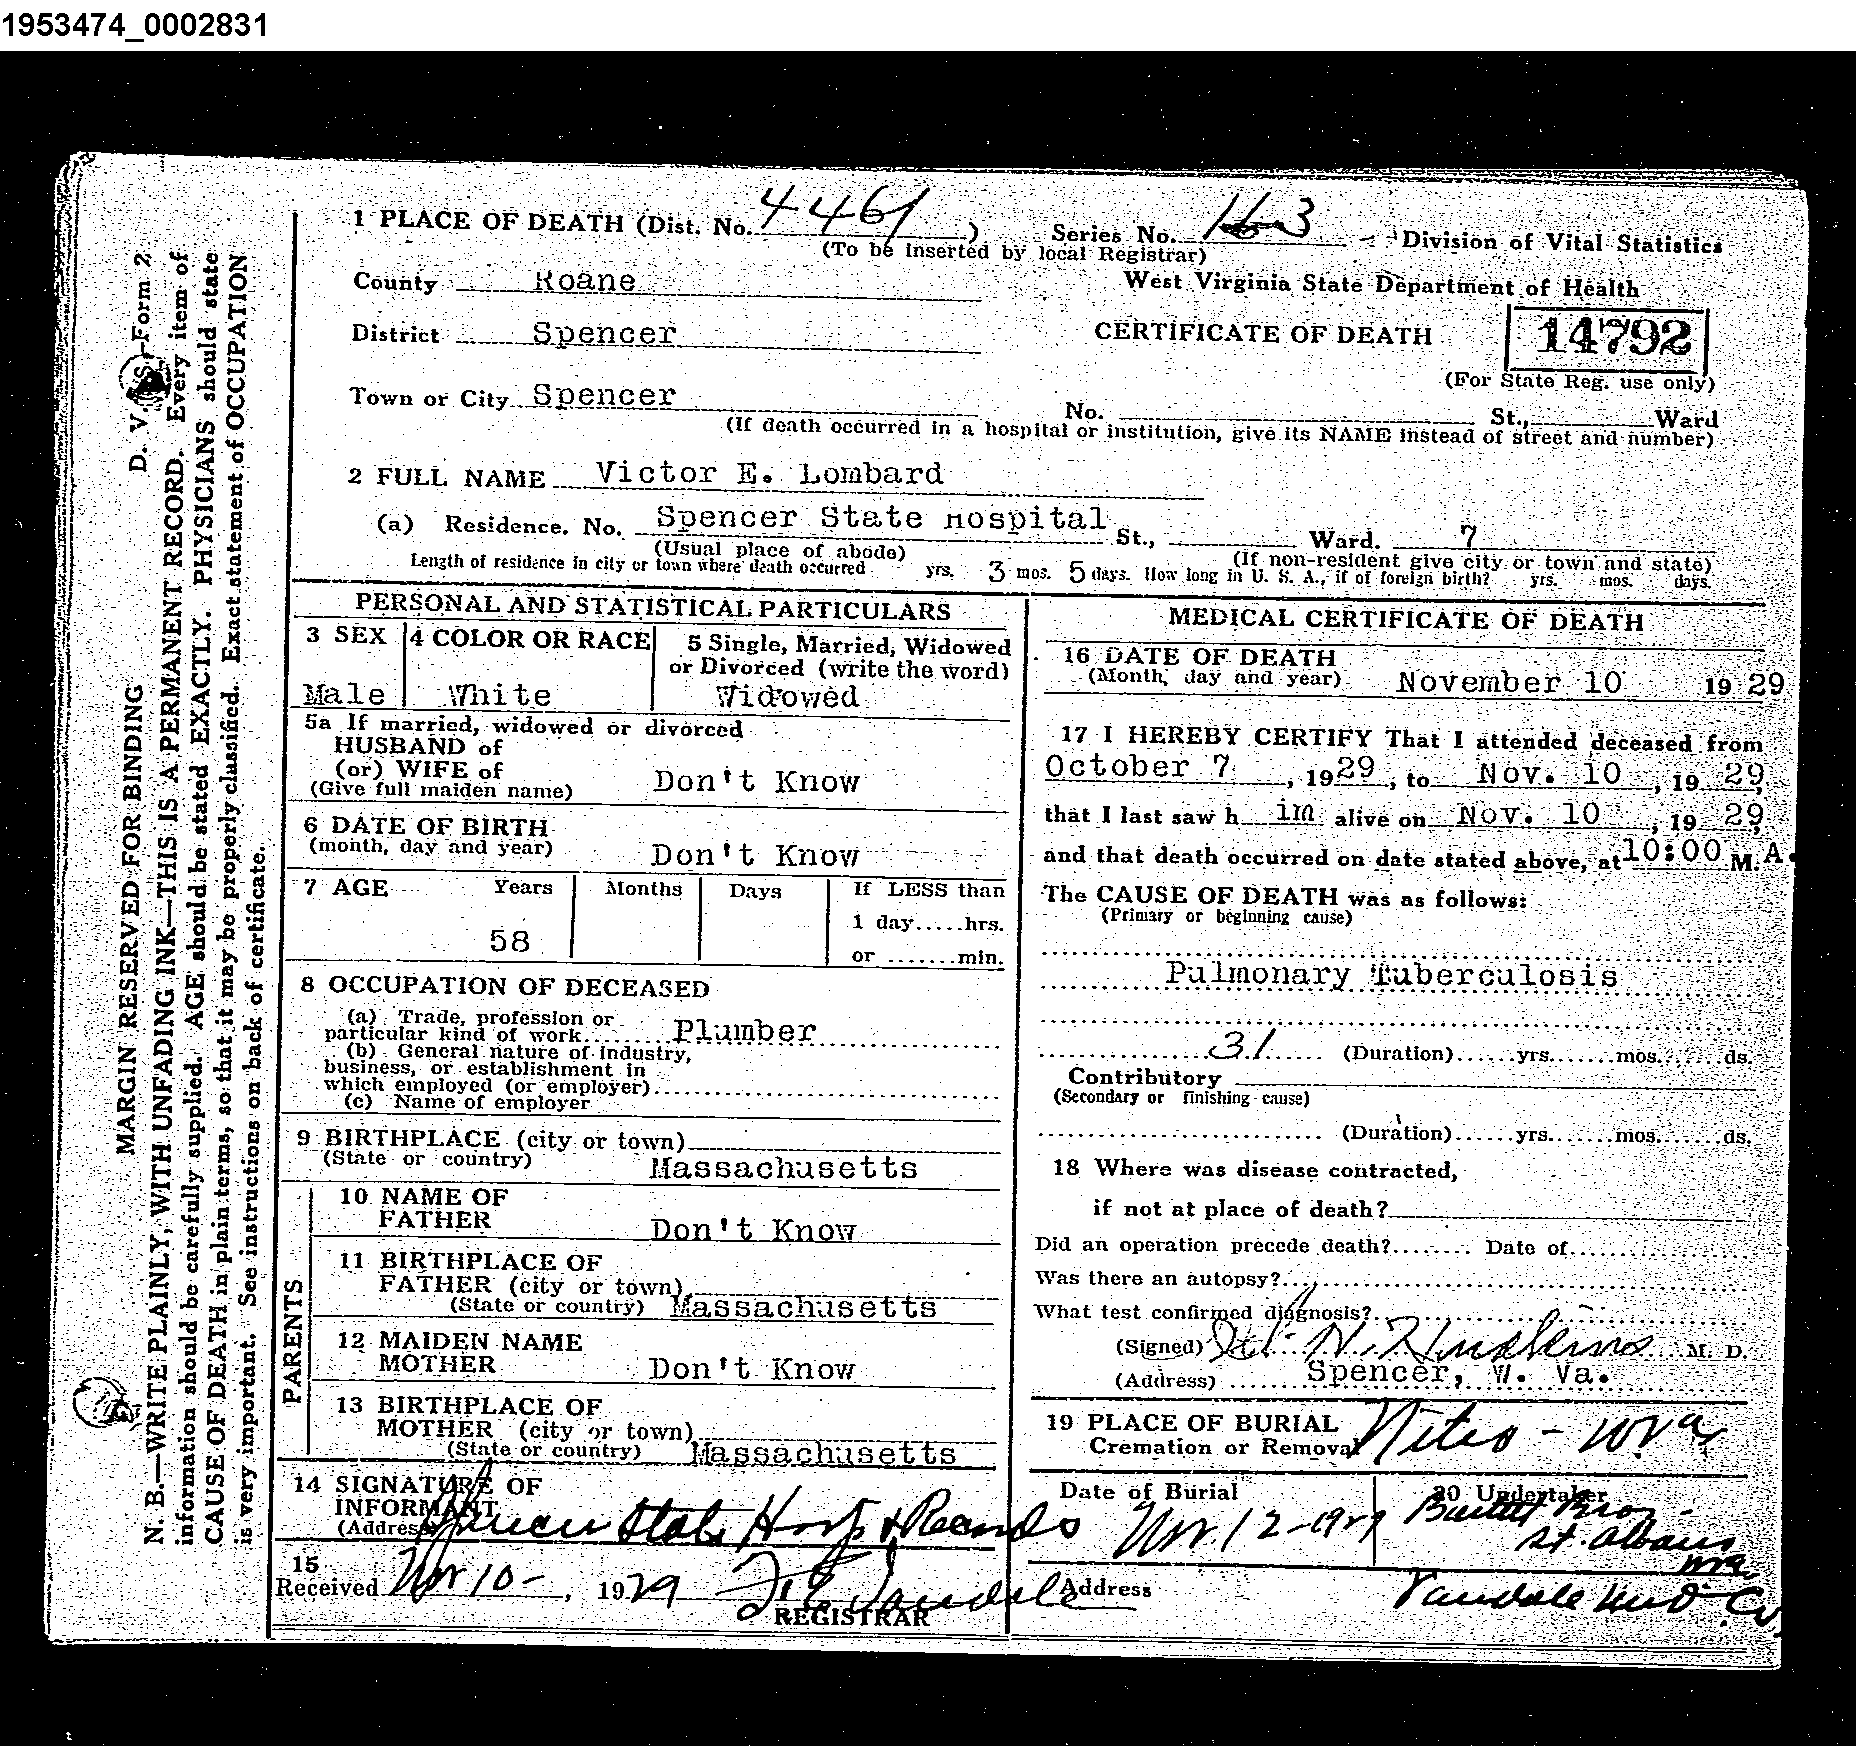 1953474_0002831
1 PLACE OF DEATH (Dist. No. 4461) Series No. 163 Division of Vital Statistics
(To be inserted by local Registrar)
County Roane West Virginia State Department of Health
District Spencer CERTIFICATE OF DEATH 14792
(For State Reg. use only)
Town or City Spencer No. St., Ward
(If death occurred in a hospital or institution, give its NAME instead of street and number)
2 FULL NAME Victor E. Lombard
(a) Residence. No. Spencer State Hospital St., Ward. 7
(Usual place of abode) (If non-resident give city or town and state)
Length of residence in city or town where death occurred yrs. 3 mos. 5 days. How long in U. S. A., if of foreign birth? yrs. mos. days.
PERSONAL AND STATISTICAL PARTICULARS
3 SEX 4 COLOR OR RACE 5 Single, Married, Widowed
or Divorced (write the word)
Male White Widowed
5a If married, widowed or divorced
HUSBAND of
(or) WIFE of
(Give full maiden name) Don't Know
6 DATE OF BIRTH
(month, day and year) Don't Know
7 AGE Years Months Days If LESS than
1 day.....hrs.
58
or .......min.
8 OCCUPATION OF DECEASED
(a) Trade, profession or
particular kind of work Plumber
(b) General nature of industry,
business, or establishment in
which employed (or employer)
(c) Name of employer
9 BIRTHPLACE (city or town)
(State or country) Massachusetts
PARENTS
10 NAME OF
FATHER Don't Know
11 BIRTHPLACE OF
FATHER (city or town)
(State or country) Massachusetts
12 MAIDEN NAME
MOTHER Don't Know
13 BIRTHPLACE OF
MOTHER (city or town)
(State or country) Massachusetts
14 SIGNATURE OF
INFORMANT
(Address) Spencer State Hosp Records
15
Received Nov 10 - , 1929
REGISTRAR
MEDICAL CERTIFICATE OF DEATH
16 DATE OF DEATH
(Month, day and year) November 10 19 29
17 I HEREBY CERTIFY That I attended deceased from
October 7, 1929, to Nov. 10, 19 29,
that I last saw h im alive on Nov. 10, 19 29,
and that death occurred on date stated above, at 10:00 M. A.
The CAUSE OF DEATH was as follows:
(Primary or beginning cause)
Pulmonary Tuberculosis
31 (Duration)......yrs.......mos.......ds.
Contributory
(Secondary or finishing cause)
(Duration)......yrs.......mos.......ds.
18 Where was disease contracted,
if not at place of death?
Did an operation precede death?........ Date of
Was there an autopsy?
What test confirmed diagnosis?
(Signed) M. D.
(Address) Spencer, W. Va.
19 PLACE OF BURIAL
Cremation or Removal Nitro - W Va
Date of Burial 20 Undertaker
Nov. 12-1929
St. Albans
Address Vandale Und Co
D. V. S.-Form 2
MARGIN RESERVED FOR BINDING
N. B.—WRITE PLAINLY, WITH UNFADING INK—THIS IS A PERMANENT RECORD. Every item of
information should be carefully supplied. AGE should be stated EXACTLY. PHYSICIANS should state
CAUSE OF DEATH in plain terms, so that it may be properly classified. Exact statement of OCCUPATION
is very important. See instructions on back of certificate.